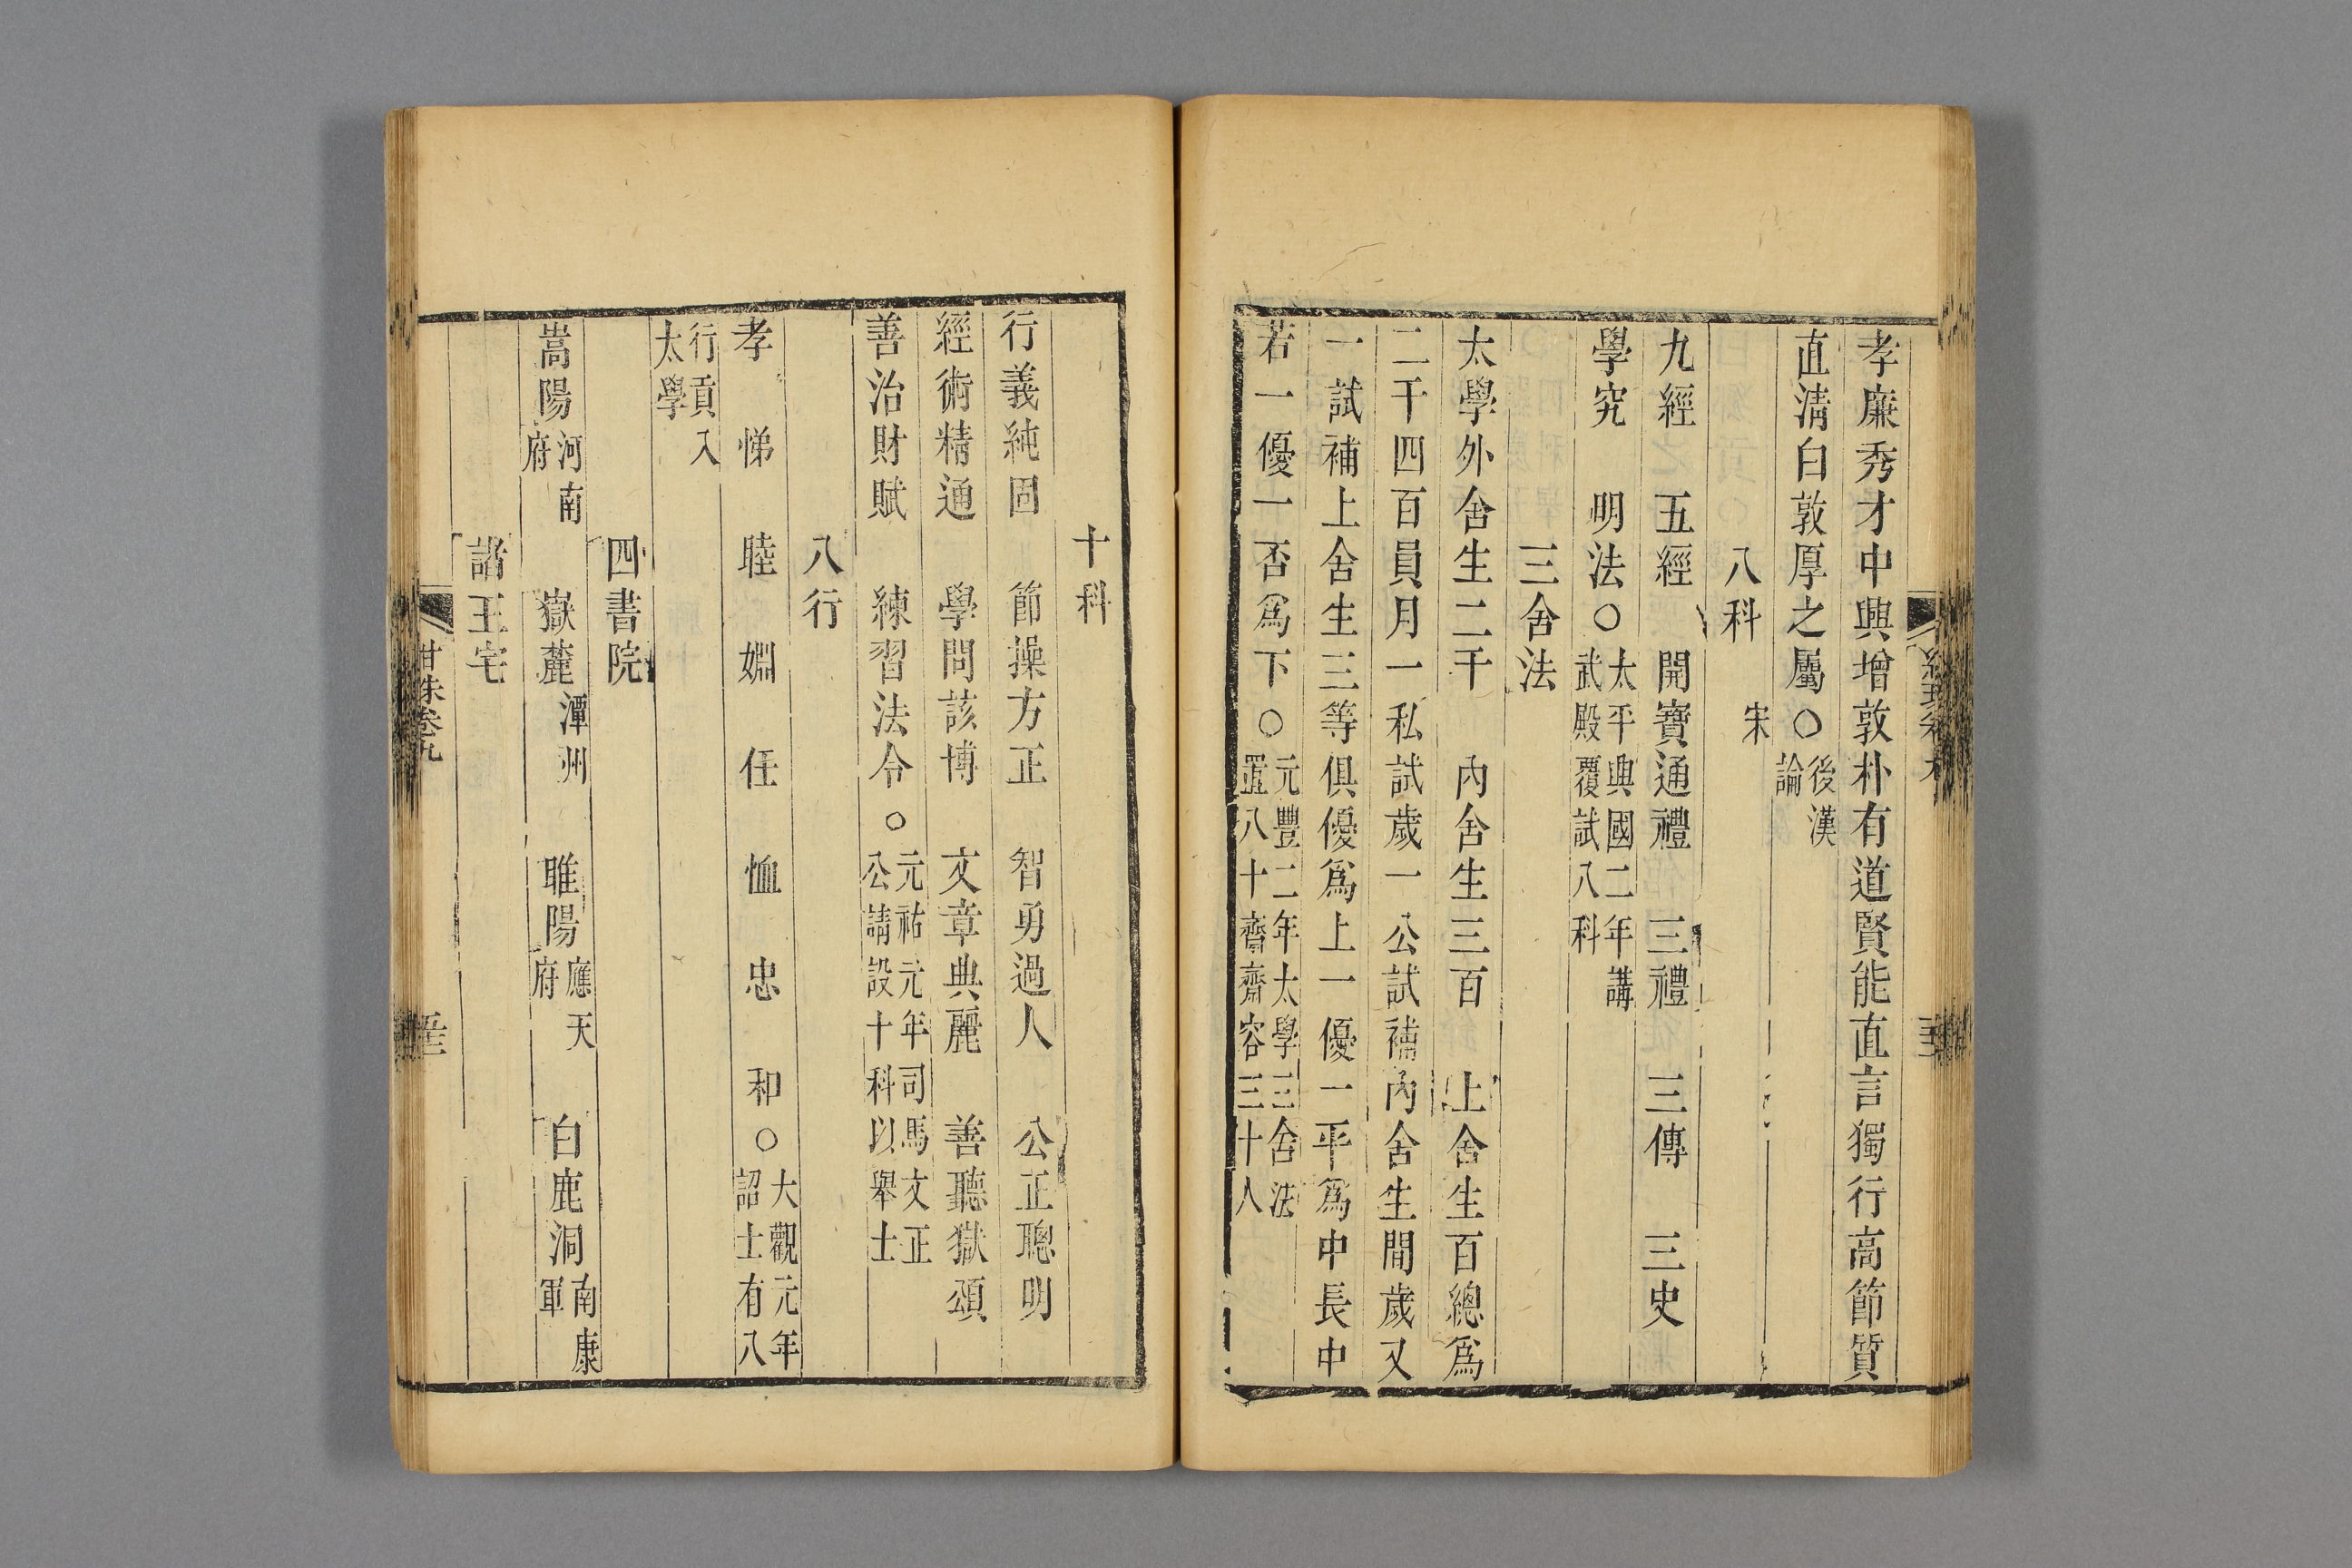 孝廉秀才中興增敦朴有道賢能直言獨行高節質
直淸白敦厚之屬○後漢論
八科宋
九經 五經 開寶通禮 三禮 三傳 三史
學究 明法○太平興國二年講武殿覆試八科
三舍法
太學外舍生二千 內舍生三百 上舍生百總爲
二千四百員月一私試歲一公試補內舍生間歲又
一試補上舍生三等俱優爲上一優一平爲中長中
若一優一否爲下○元豐二年太學三舍法置八十齋齋容三十人
十科
行義純固 節操方正 智勇過人 公正聰明
經術精通 學問該博 文章典麗 善聽獄頌
善治財賦 練習法令○元祐元年司馬文正公請設十科以舉士
八行
孝 悌 睦 婣 任 恤 忠 和○大觀元年詔士有八
行貢入太學
四書院
嵩陽河南府 嶽麓潭州 睢陽應天府 白鹿洞南康軍
諸王宅